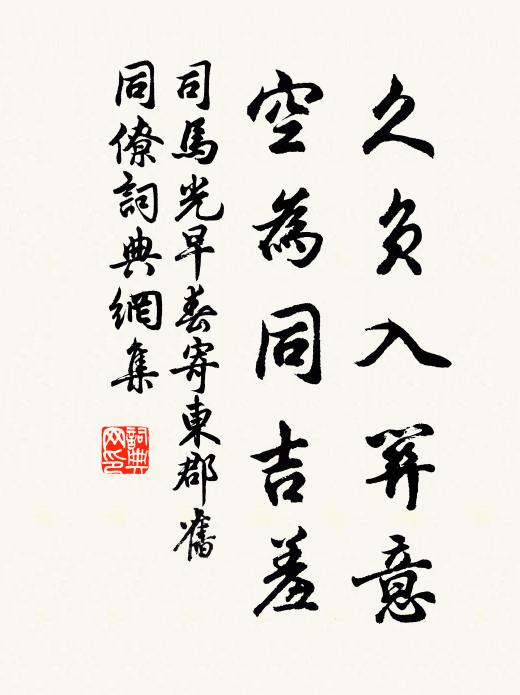 久負入關意
空為同吉羞
司馬光早春寄東郡舊
同僚詞典網集
詞典網印